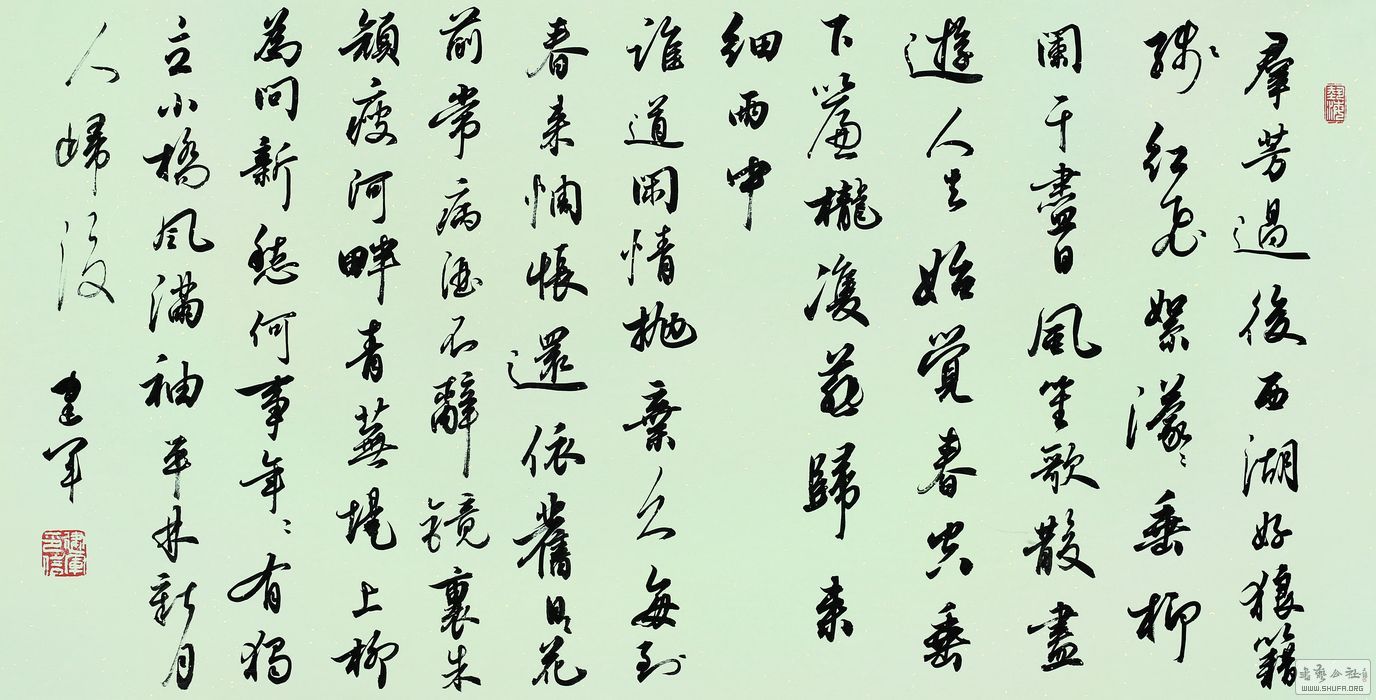 羣芳過後西湖好狼籍
殘〻紅飛絮濛〻垂柳
闌干盡日風笙歌散盡
遊人去始覺春空垂
下簾櫳雙燕歸來
細雨中
誰道閑情拋棄久每到
春來惆悵還依舊日〻花
前常病酒不辭鏡裏朱
顏瘦河畔青蕪堤上柳
為問新愁何事年〻有獨
立小橋風滿袖平林新月
人歸後
建軍
建軍印信
WWW.SHUFA.ORG